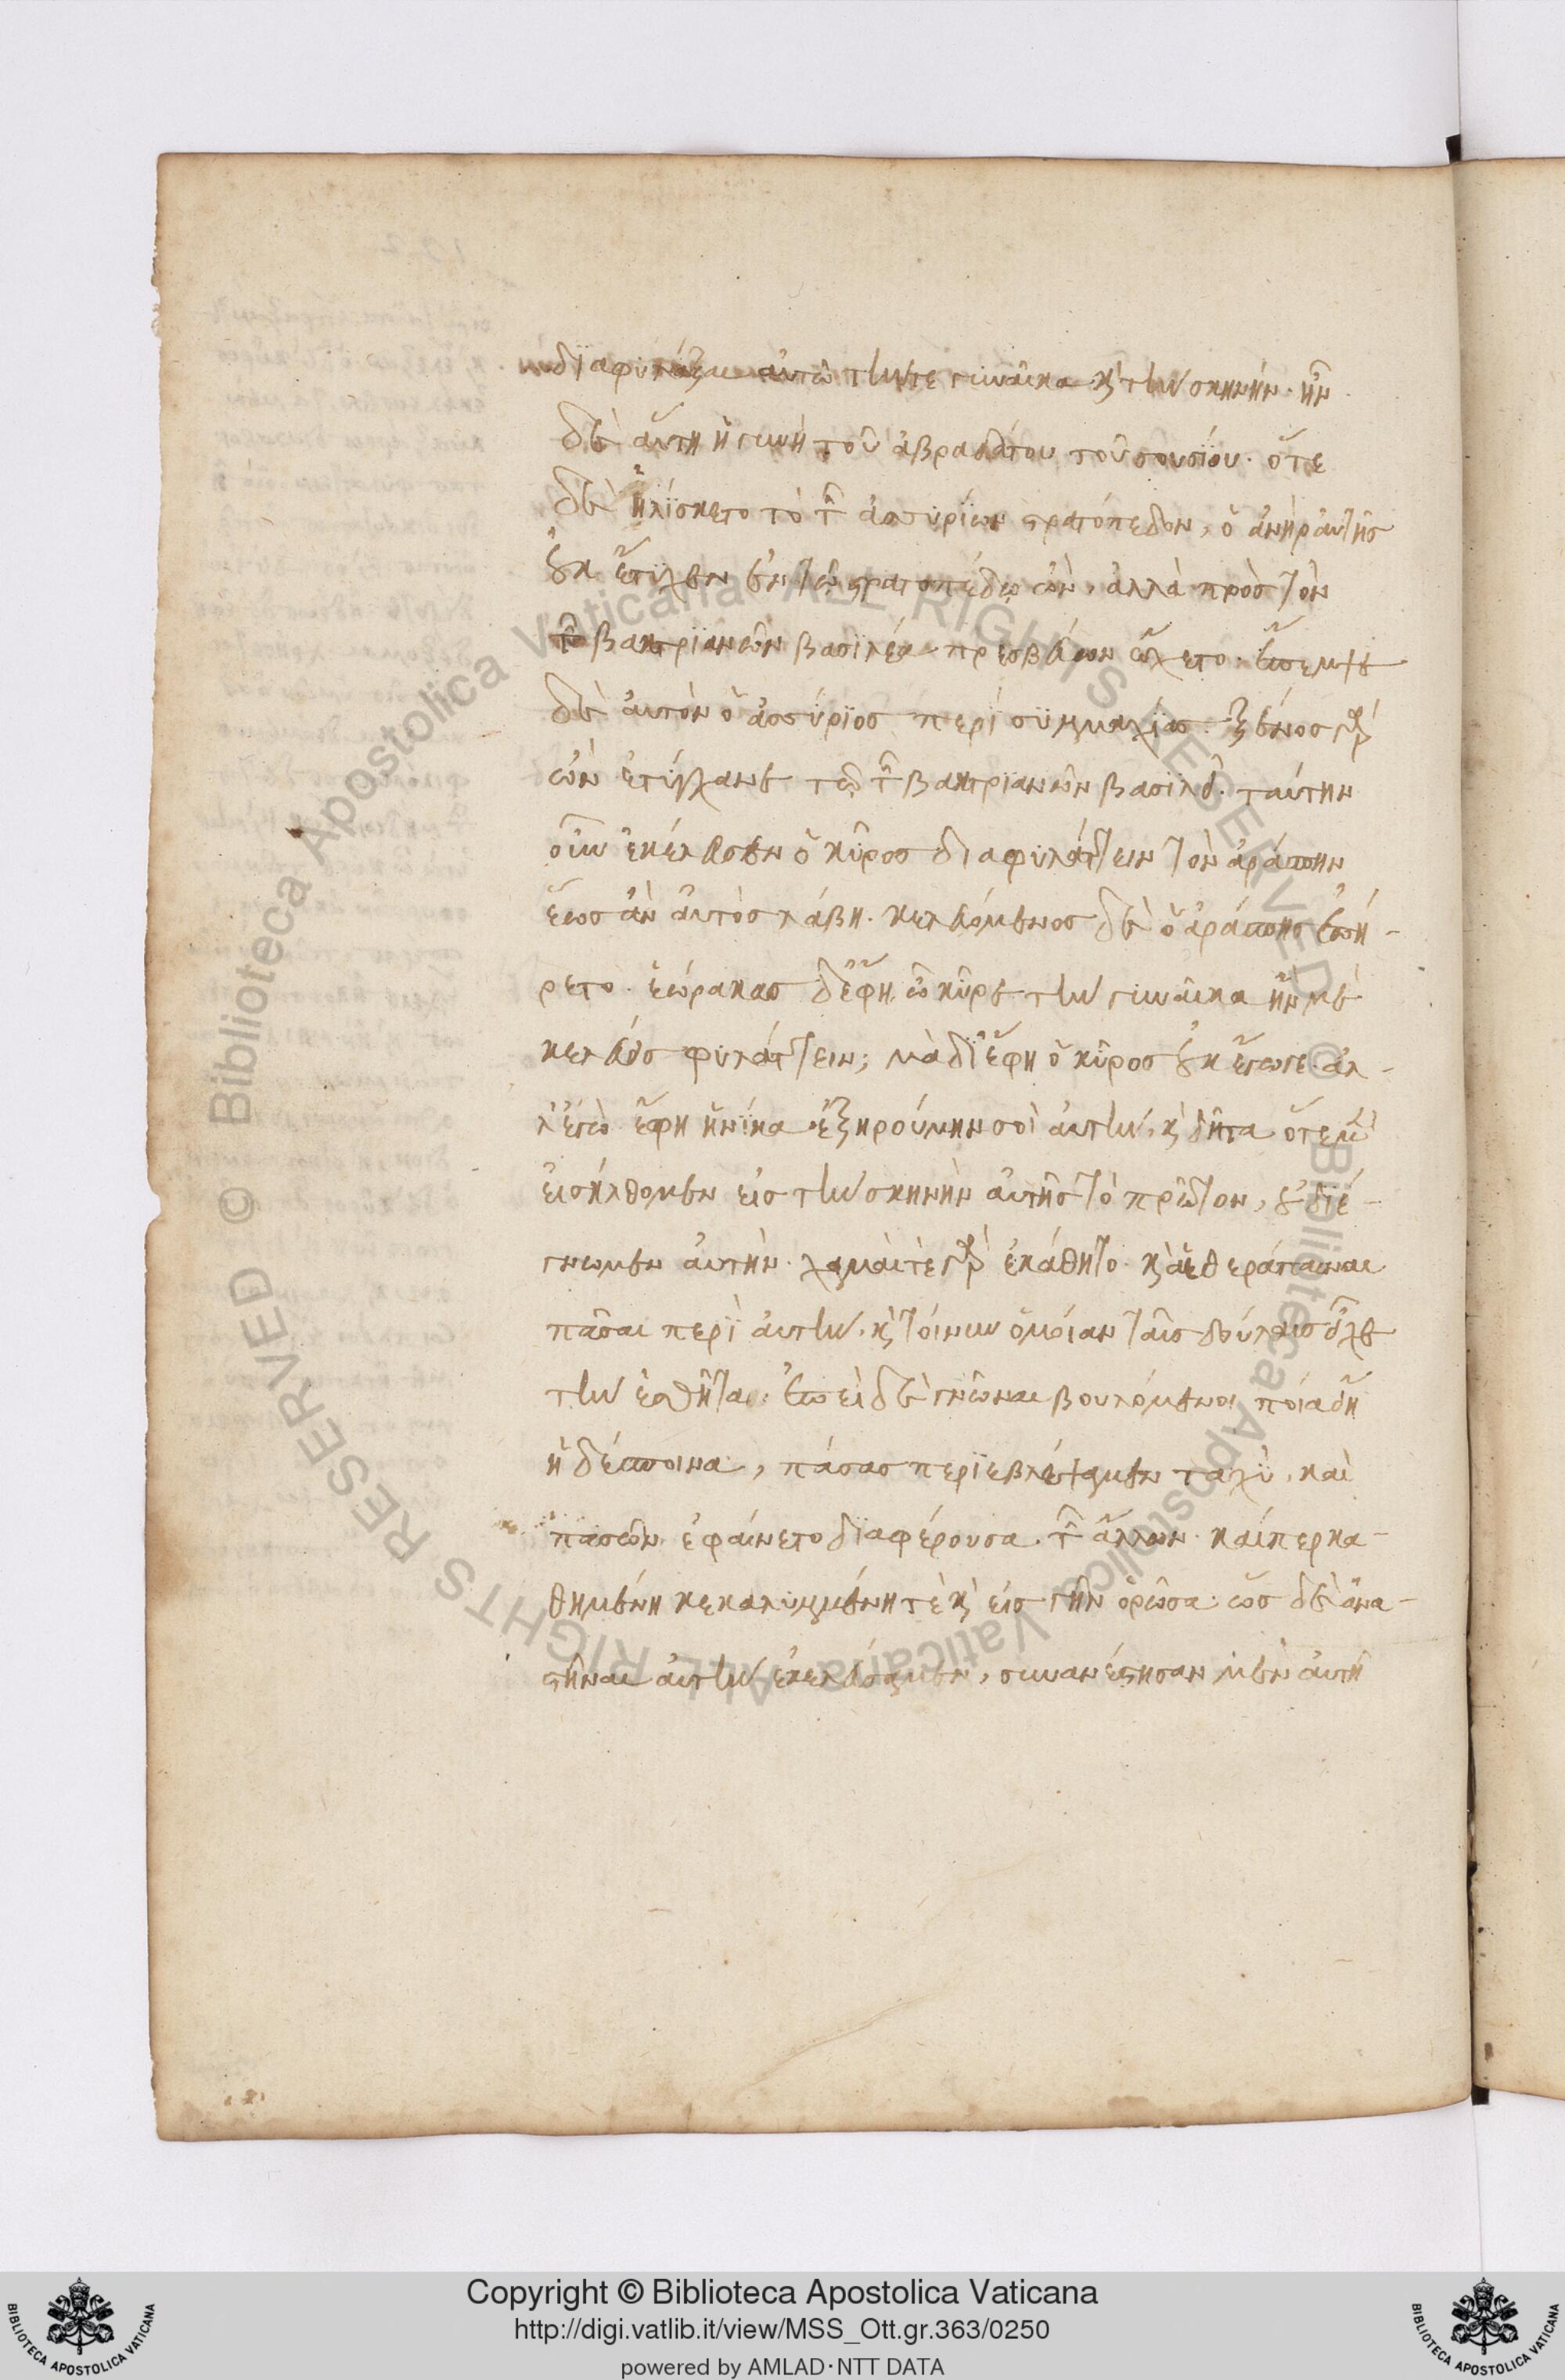 διαφυλάξαι αὐτῶ τήν τε γυναῖκα κ τὴν σκηνήν. ἦν
δὲ αὕτη ἡ γυνὴ τοῦ ἀβραδάτου τοῦ σουσίου. ὅτε
δὲ ἡλίσκετο τὸ τῶν ἀσσυρίων στρατόπεδον, ὁ ἀνὴρ αὐτῆς
οὐκ ἔτυχεν ἐν τῶ στρατοπέδω ὢν, ἀλλὰ πρὸς τὸν
τῶν βακτριανῶν βασιλέα πρεσβεύων ᾤχετο. ἔπεμψε
δὲ αὐτὸν ὁ ἀσσύριος περὶ συμμαχίας. ξένος γὰρ
ὢν ἐτύγχανε τῶ τῶν βακτριανῶν βασιλεῖ. ταύτην
οὖν ἐκέλευσεν ὁ κῦρος διαφυλάττειν τὸν ἀράσπην
ἕως ἂν αὐτὸς λάβη. κελευόμενος δὲ ὁ ἀράσπης ἐπή-
ρετο. ἑώρακας δ' ἔφη, ὦ κῦρε τὴν γυναῖκα ἥν με
κελεύεις φυλάττειν; μὰ δί' ἔφη ὁ κῦρος οὐκ ἔγωγε. ἀλ-
λ' ἐγὼ ἔφη ἡνίκα ἐξηρούμην σοὶ αὐτήν. κ δῆτα ὅτε μὲν
εἰσήλθομεν εἰς τὴν σκηνὴν αὐτῆς τὸ πρῶτον, οὐ διέ-
γνωμεν αὐτήν. χαμαί τε γὰρ ἐκάθητο. κ αἱ θεράπαιναι
πᾶσαι περὶ αὐτήν. κ τοίνυν ὁμοίαν ταῖς δούλαις εἶχε
τὴν ἐσθῆτα. ἐπεὶ δὲ γνῶναι βουλόμενοι ποία δὴ
ἡ δέσποινα, πάσας περιεβλέψαμεν ταχὺ, καὶ
πασῶν ἐφαίνετο διαφέρουσα τῶν ἄλλων. καίπερ κα-
θημένη κεκαλυμμένη τὲ κ εἰς γῆν ὁρῶσα. ὡς δὲ ἀνα-
στῆναι αὐτὴν ἐκελεύσαμεν, συνανέστησαν μὲν αὐτῆ
Copyright © Biblioteca Apostolica Vaticana
http://digi.vatlib.it/view/MSS_Ott.gr.363/0250
powered by AMLAD·NTT DATA